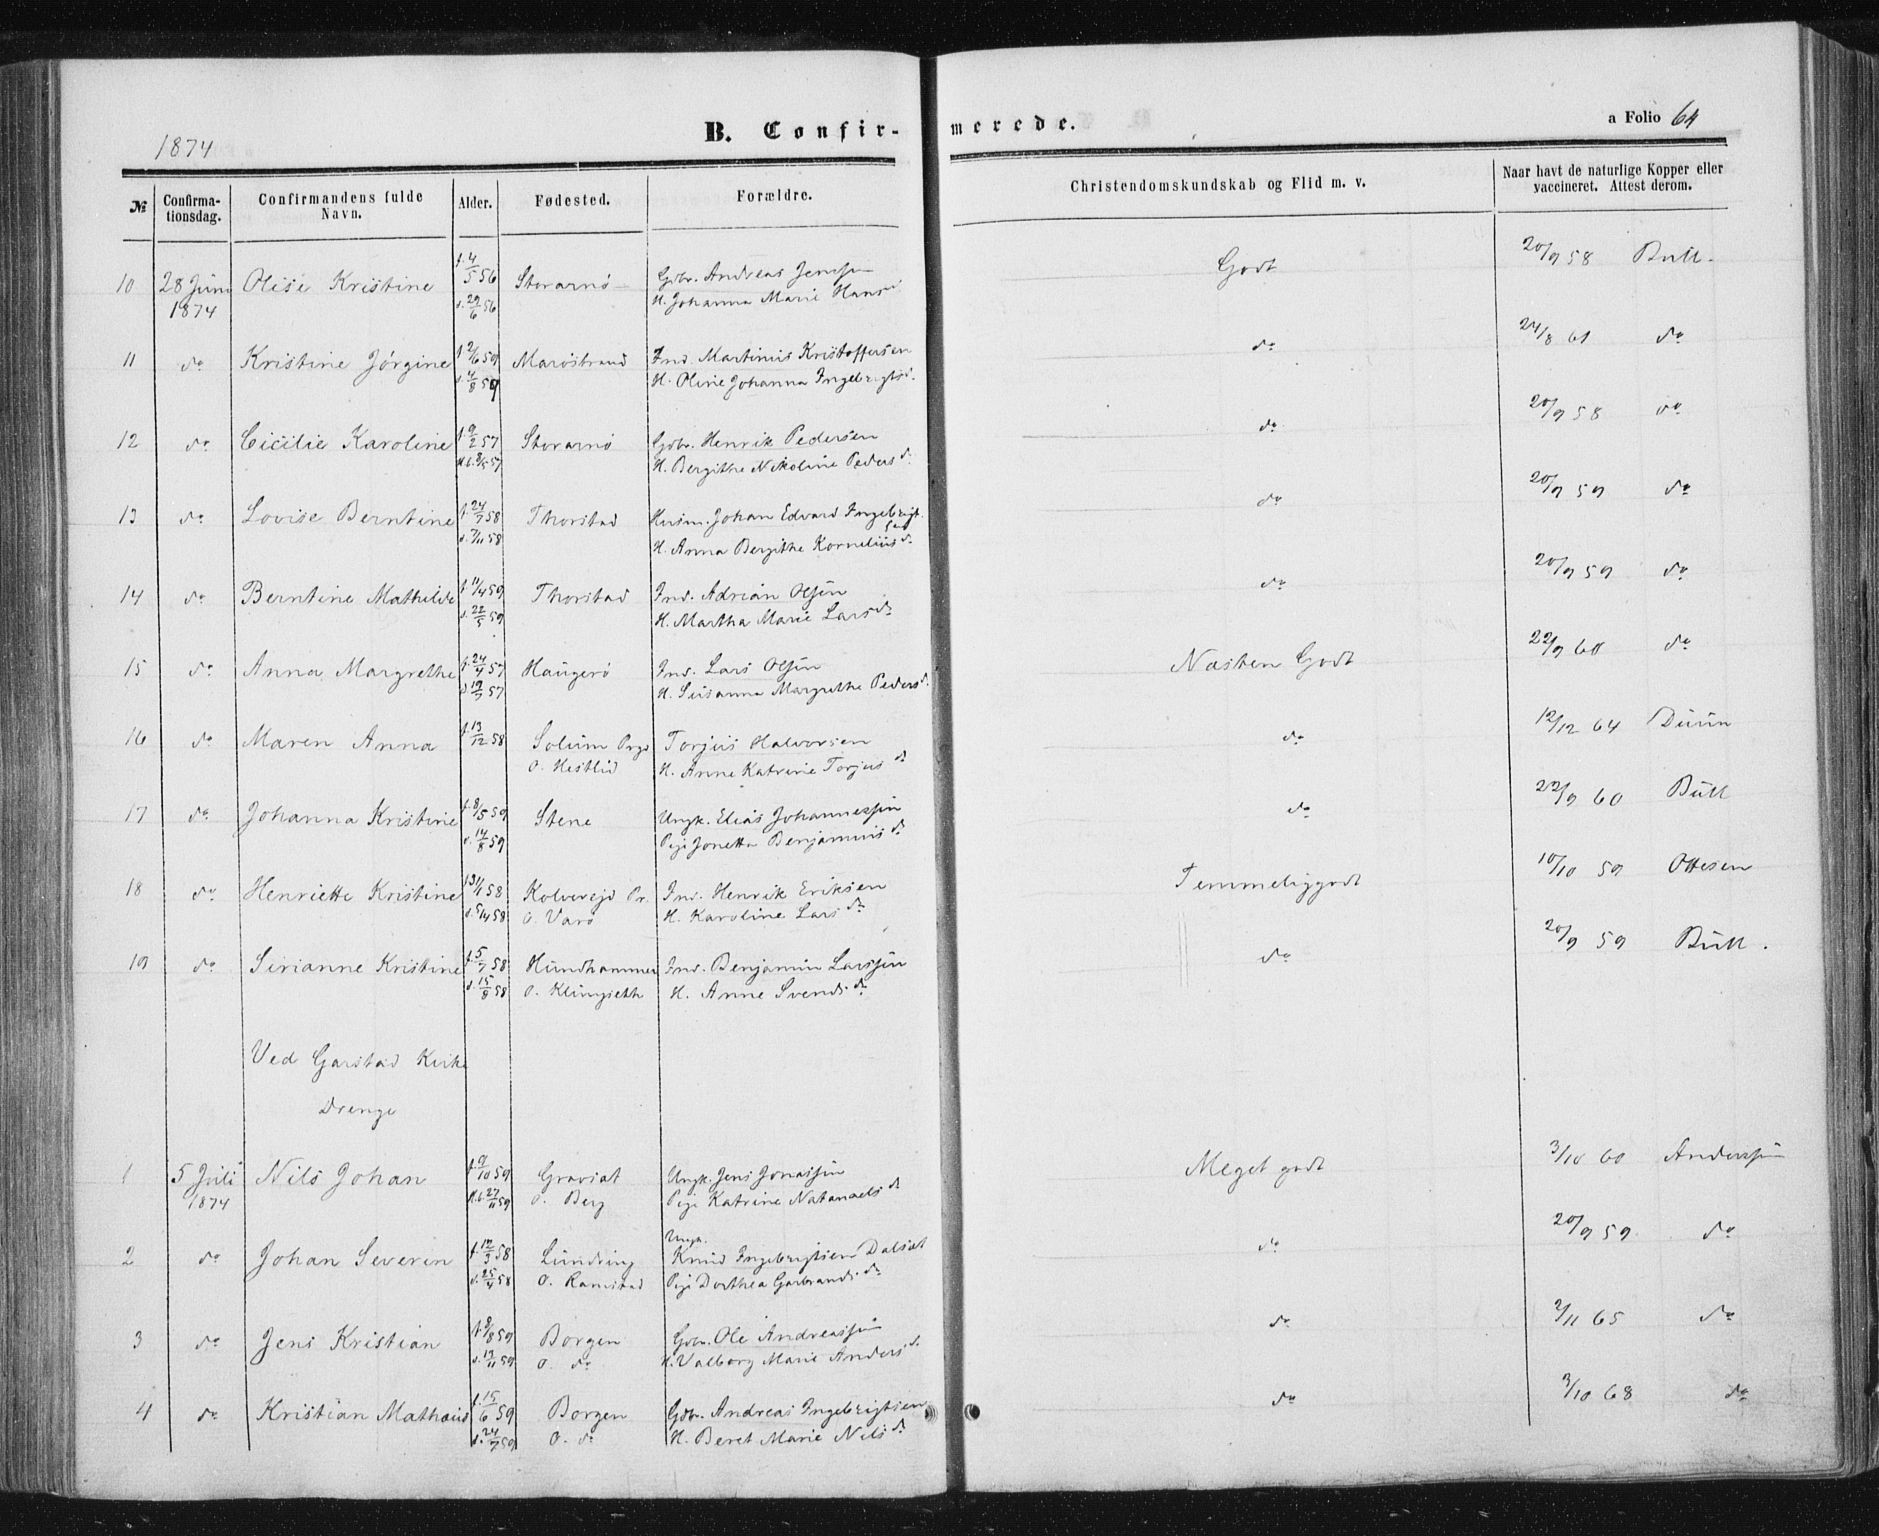 1874
B. Confir-
merede.
a Folio 64
№
Confirma-
tionsdag.
Confirmandens fulde
Navn.
Alder.
Fødested.
Forældre.
Christendomskundskab og Flid m. v.
Naar havt de naturlige Kopper eller
vaccineret. Attest derom.
10 28 Juni Olise Kristine f. 4/5 56 Storarnø Gdbr. Andreas Jenssen Godt 20/9 58 Bull.
1874 d. 29/6 56 H. Johanna Marie Hansd.
11 do Kristine Jørgine f 2/6 59 Marøstrand Ind. Martinus Kristoffersen do 24/8 61 do
d. 4/8 59 H. Oline Johanna Ingebrigtsd.
12 do Cicilie Karoline f 9/2 57 Storarnø Gdbr. Henrik Pedersen do 20/9 58 do
H.d. 8/5 57 H. Bergithe Nikoline Pedersd.
13 do Lovise Berntine f. 24/7 58 Thorstad Husm. Johan Edvard Ingebrigt- do 20/9 59 do
sen
d. 7/11 58 H. Anna Bergithe Korneliusd.
14 do Berntine Mathilde f 11/4 59 Thorstad Ind. Adrian Olsen do 20/9 59 do
d. 22/5 59 H. Martha Marie Larsd.
15 do Anna Margrethe f. 24/4 57 Haugerø Ind. Lars Olsen Næsten Godt 22/9 60 do
d. 19/7 57 H. Susanna Margrethe Pedersd.
16 do Maren Anna f 13/12 58 Solum Prgd Torjus Halvorsen do 12/12 64 Duun
O. Hestlid H. Anne Katrine Torjusd.
17 do Johanna Kristine f. 8/5 59 Stene Ungk. Elias Johannessen do 22/9 60 Bull
d. 14/8 59 Pige Jonetta Benjaminsd.
18 do Henriette Kristine 31/1 58 Kolvereid Pr. Ind. Henrik Eriksen Temmeliggodt 10/10 59 Ottesen
d. 5/4 58 O. Varø H. Karoline Larsd.
19 do Sirianne Kristine f. 5/7 58 Hundhammer Ind. Benjamin Larssen do 20/9 59 Bull.
d. 15/8 58 O. H. Anne Svendsd.
Ved Garstad Kirke
Drenge
1 5 Juli Nils Johan f. 9/10 59 Graviat Ungk. Jens Jonassen Meget godt 3/10 60 Anderssen
1874 H.d. 27/11 59 O. Berg Pige Katrine Natanaelsd.
Ungk.
2 do Johan Severin f. 12/3 58 Lundring Knud Ingebrigtsen Dalsæt do 20/9 59 do
d. 25/4 58 O. Ramstad Pige Dorthea Garbrandsd.
3 do Jens Kristian f 9/8 59 Borgen Gdbr. Ole Andreassen do 2/11 65 do
d. 19/11 59 O. do H. Valborg Marie Andersd.
4 do Kristian Mathæus f. 15/6 59 Borgen Gdbr. Andreas Ingebrigtsen do 3/10 68 do
d. 24/7 59 O. do H. Beret Marie Nilsd.